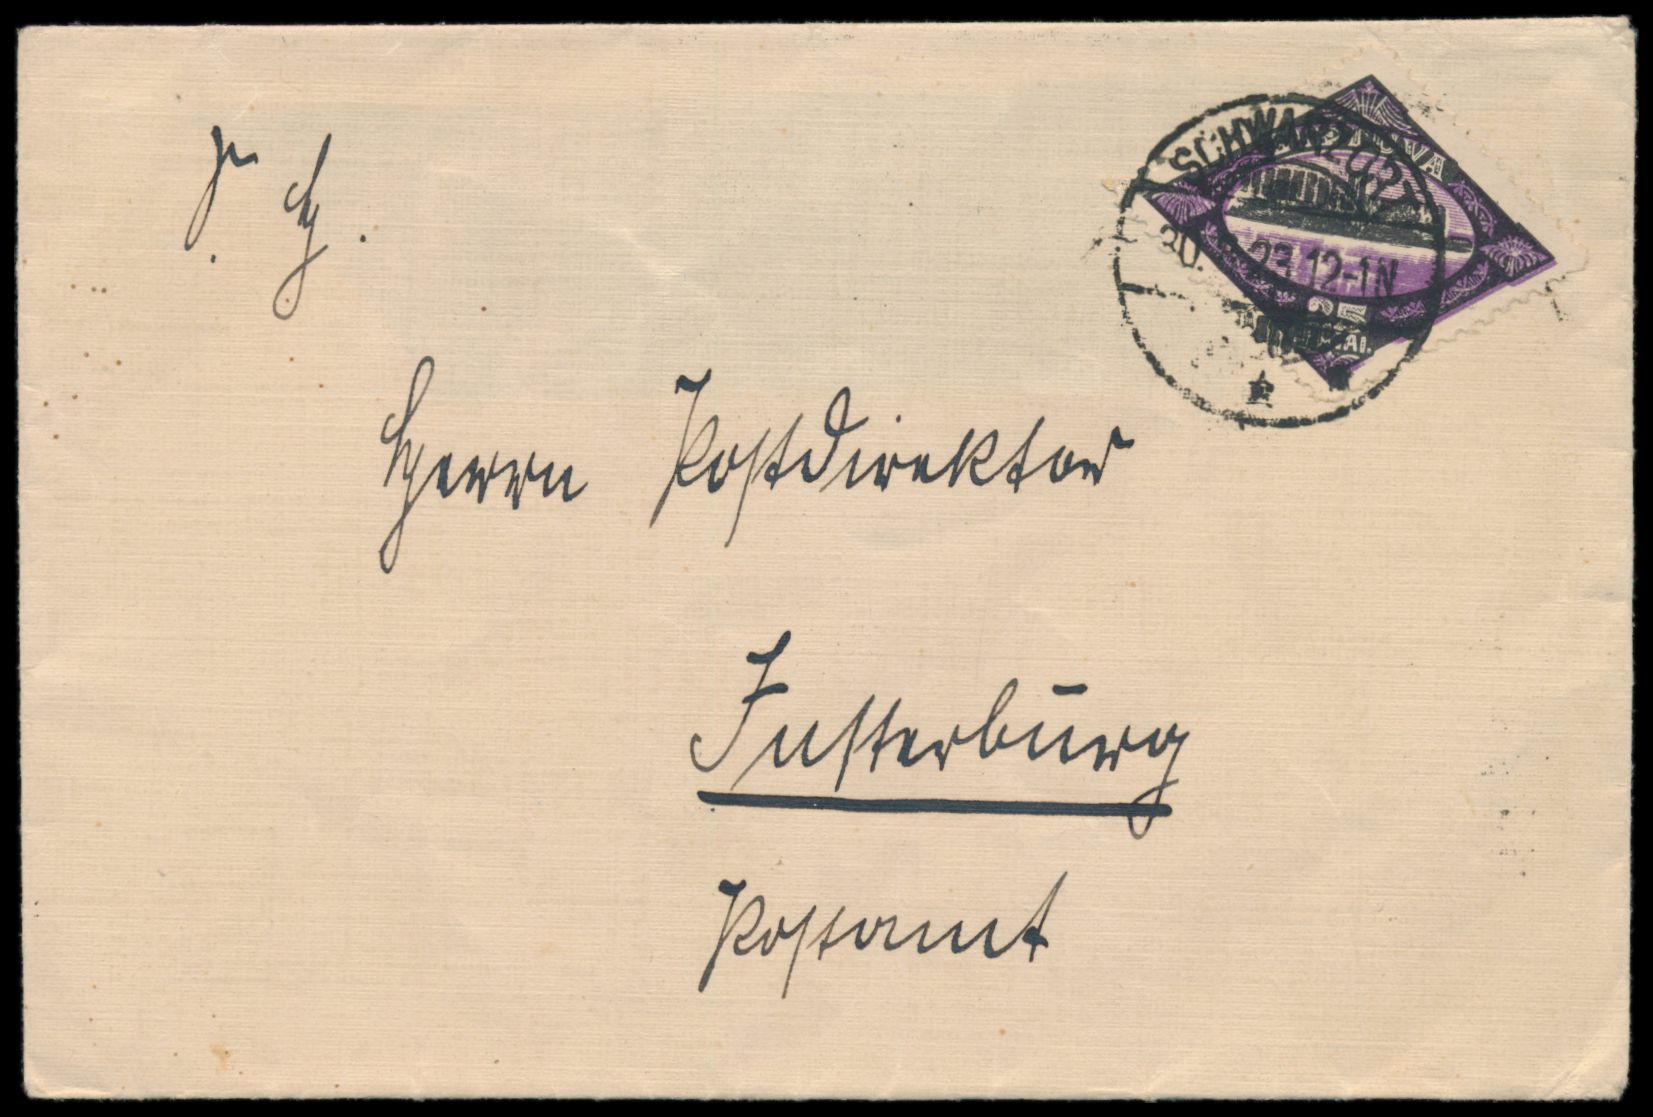 SCHWARZORT
30. 23 12-1N
25
Herrn Postdirektor
Insterburg
Postamt